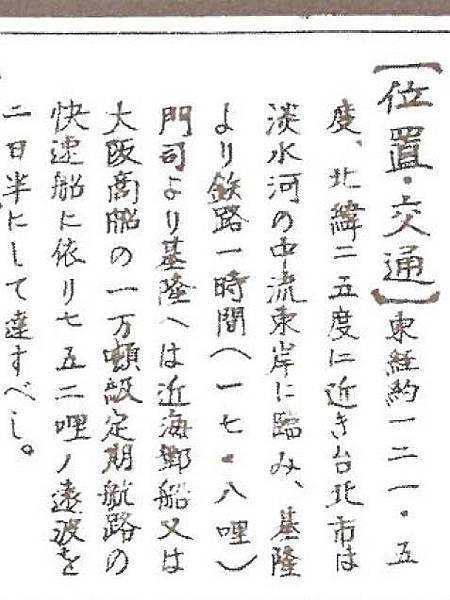 【位置・交通】東経約一二一・五
度、北緯二五度に近き台北市は
淡水河の中流東岸に臨み、基隆
より鉄路一時間(一七・八哩)
門司より基隆へは近海郵船又は
大阪商船の一万噸級定期航路の
快速船に依り七五二哩ノ遠波を
二日半にして達すべし。